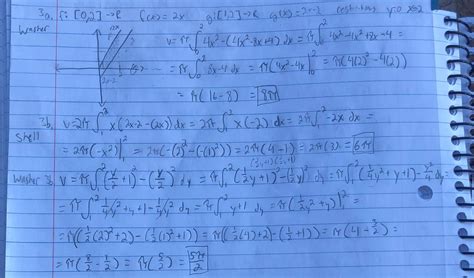 3a. f: [0,2]→R f(x)=2x g: [1,2]→R g(x)=2x-2 y=0 x=2
Washer V=π∫₀² 4x²-(4x²-8x+4) dx = π∫₀² 4x²-4x²+8x-4 =
= π∫₀² 8x-4 dx = π(4x²-4x|₀² = π(4(2)²-4(2))
2x-2
= π(16-8) = 8π
3b. V=2π∫₁² x(2x-2-(2x)) dx = 2π∫₁² x(-2) dx = 2π∫₁² -2x dx =
Shell = 2π(-x²)|₁² = 2π(-(2)²-(-(1)²)) = 2π(4-1) = 2π(3) = 6π
Washer V=π∫₁² (y/2+1)²-(y/2)² dy = π∫₁² (½y+1)²-(½y)² dy = π∫₁² (¼y²+y+1)-y²/4 dy =
= π∫₁² ¼y²+y+1-¼y² dy = π∫₁² y+1 dy = π(½y²+y)|₁² =
= π(½(2)²+2)-(½(1)²+1)) = π((½(4)+2)-(½+1)) = π(4-3/2) =
= π(8/2-3/2) = π(5/2) = 5π/2